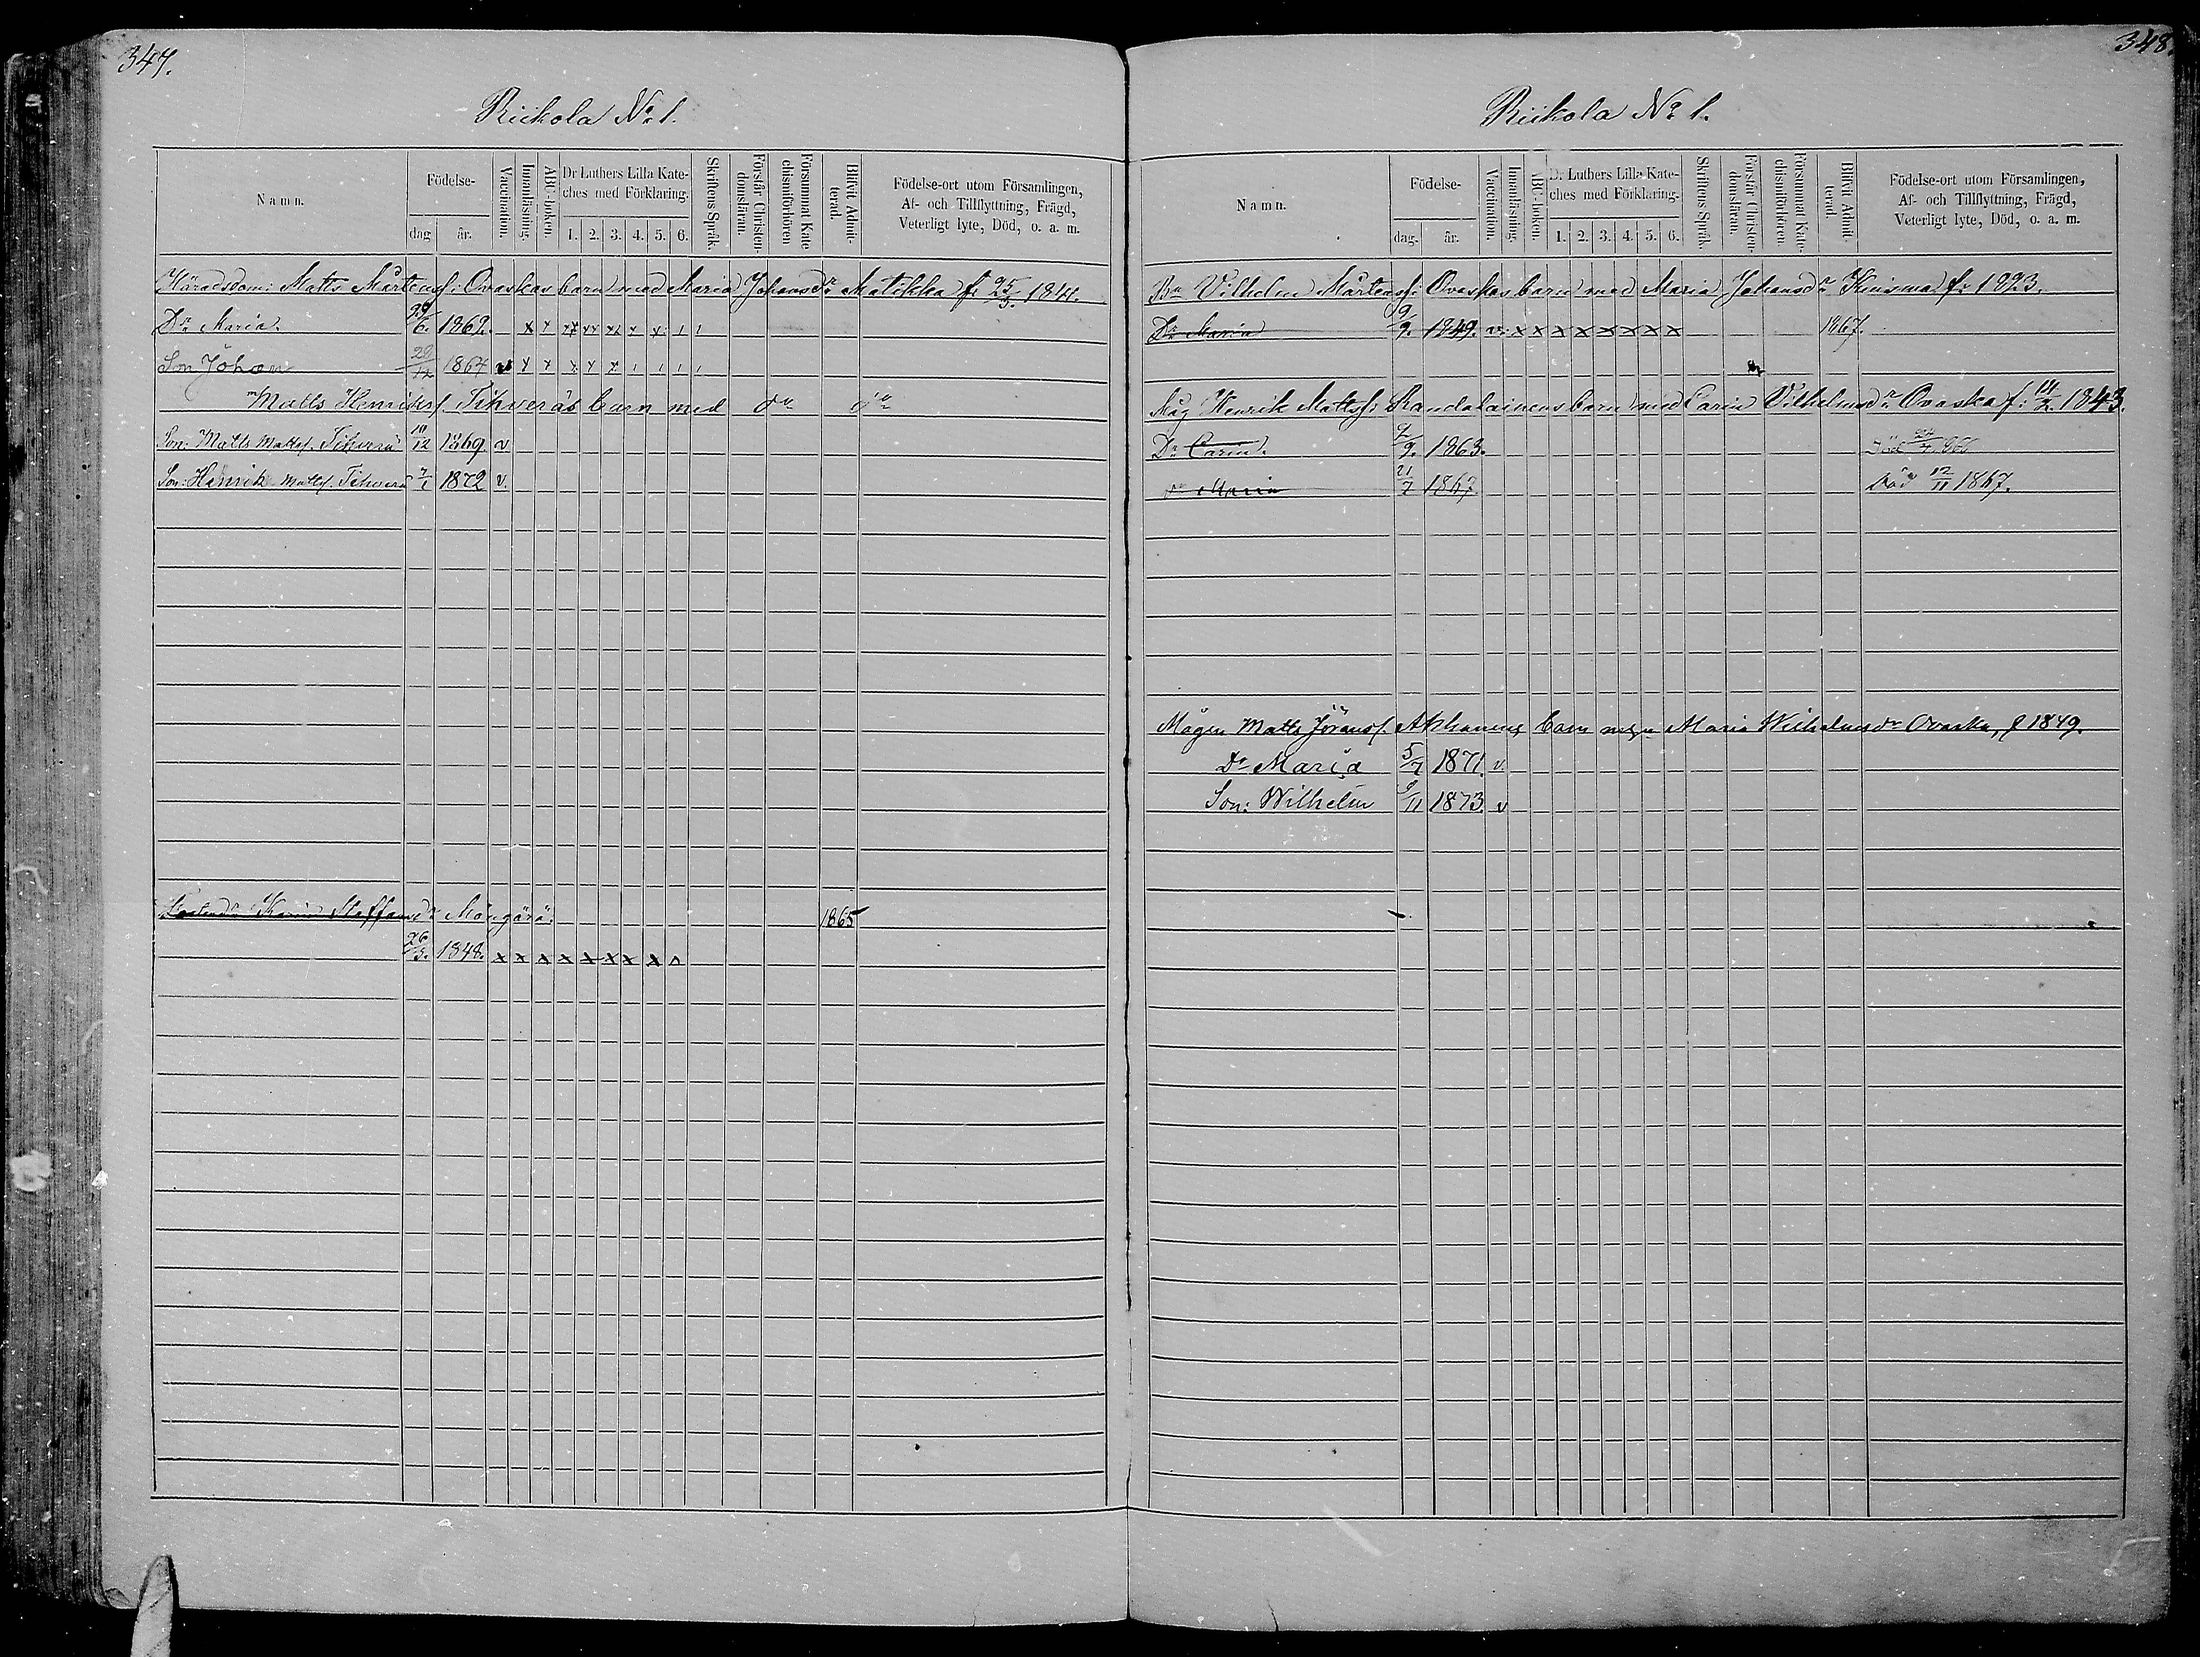 347.
Riikola No 1.
Namn.
Födelse-
dag
år.
Vaccination.
Innanläsning.
ABC-boken.
Dr Luthers Lilla Kate-
ches med Förklaring.
1. 2. 3. 4. 5. 6.
Skriftens Språk.
Förstår Christen-
domsläran.
Försummat Kate-
chismiförhören
Blifvit Admit-
terad.
Födelse-ort utom Församlingen,
Af- och Tillflyttning, Frägd,
Veterligt lyte, Död, o. a. m.
Häradsdom: Matts Mårtensf: Ovaskas barn med Maria Johansdr Matikka f. 25/3. 1841.
Dr Maria. /6. 1862. x x xx xx xx x x 1 1
Son Johan 28/12 1864 v x x x x x 1 1 1 1
Matts Henriksf. Tihveräs barn med do do
Son: Matts Mattsf. Tihverä 10/12 1869. v
Son: Henrik Mattsf. Tihverä 7/1 1872 v.
Karin Staffansdr Mängärä. 1865
26/3. 1848. x x x x x x x x
348.
Riikola No 1.
Namn.
Födelse-
dag.
år.
Vaccination.
Innanläsning.
ABC-boken.
Dr Luthers Lilla Kate-
ches med Förklaring.
1. 2. 3. 4. 5. 6.
Skriftens Språk.
Förstår Christen-
domsläran.
Försummat Kate-
chismiförhören.
Blifvit Admit-
terad.
Födelse-ort utom Församlingen,
Af- och Tillflyttning, Frägd,
Veterligt lyte, Död, o. a. m.
Br Vilhelm Mårtensf: Ovaskas barn med Maria Johansdr Kinisma f. 1823.
Dr Maria 9/9. 1849. v. x x x x x x x x 1867.
Måg Henrik Mattsf: Kandalainens barn med Carin Vilhelmsdr Ovaska f. 14/2. 1843.
Dr Carin. /9. 1863. Död
dr Maria 21/7 1867. Död 12/11 1867.
Mågen Matts Göransf. Akkanens barn m. Maria Wilhelmsdr Ovaska, f 1849.
Dr Maria 5/7 1871. v.
Son: Wilhelm /11 1873. v